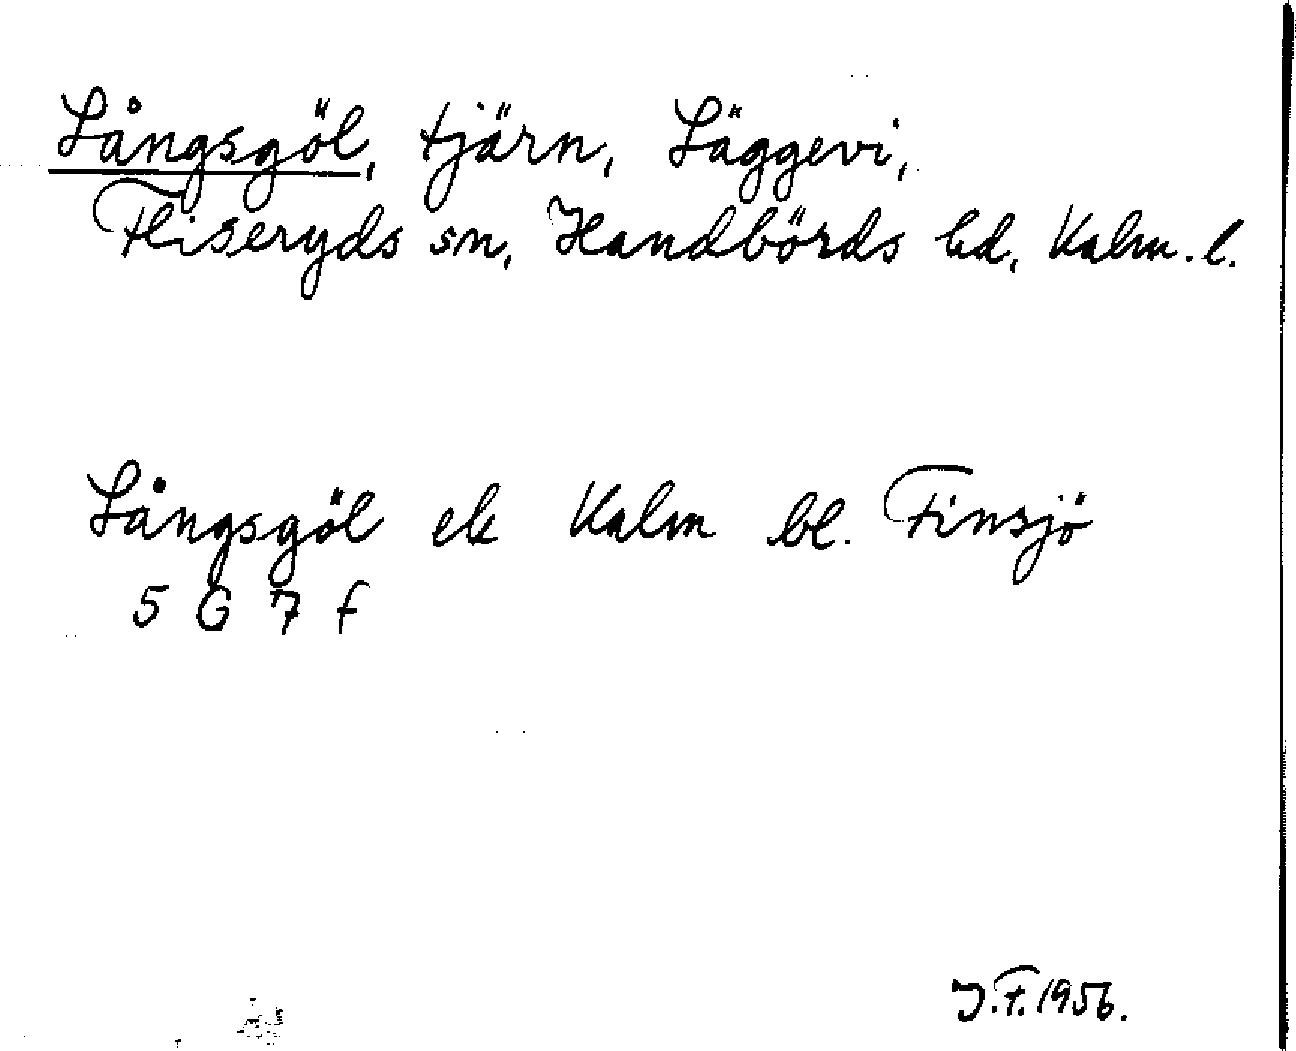 Långsgöl, tjärn, Läggevi,
Fliseryds sn, Handbörds hd, Kalm. l.
Långsgöl ek Kalm bl. Finsjö
5 G 7 f
J.F. 1956.